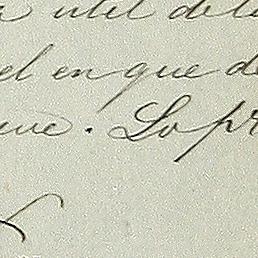 util de la
el en que de
que. Lo pr